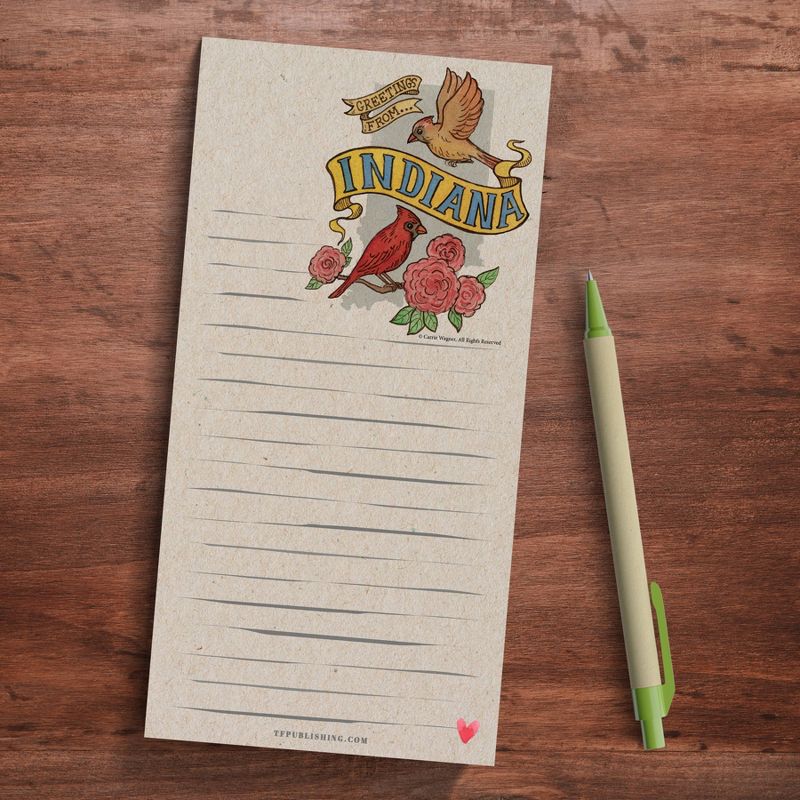 GREETINGS
FROM...
INDIANA
© Carrie Wagner, All Rights Reserved
TFPUBLISHING.COM